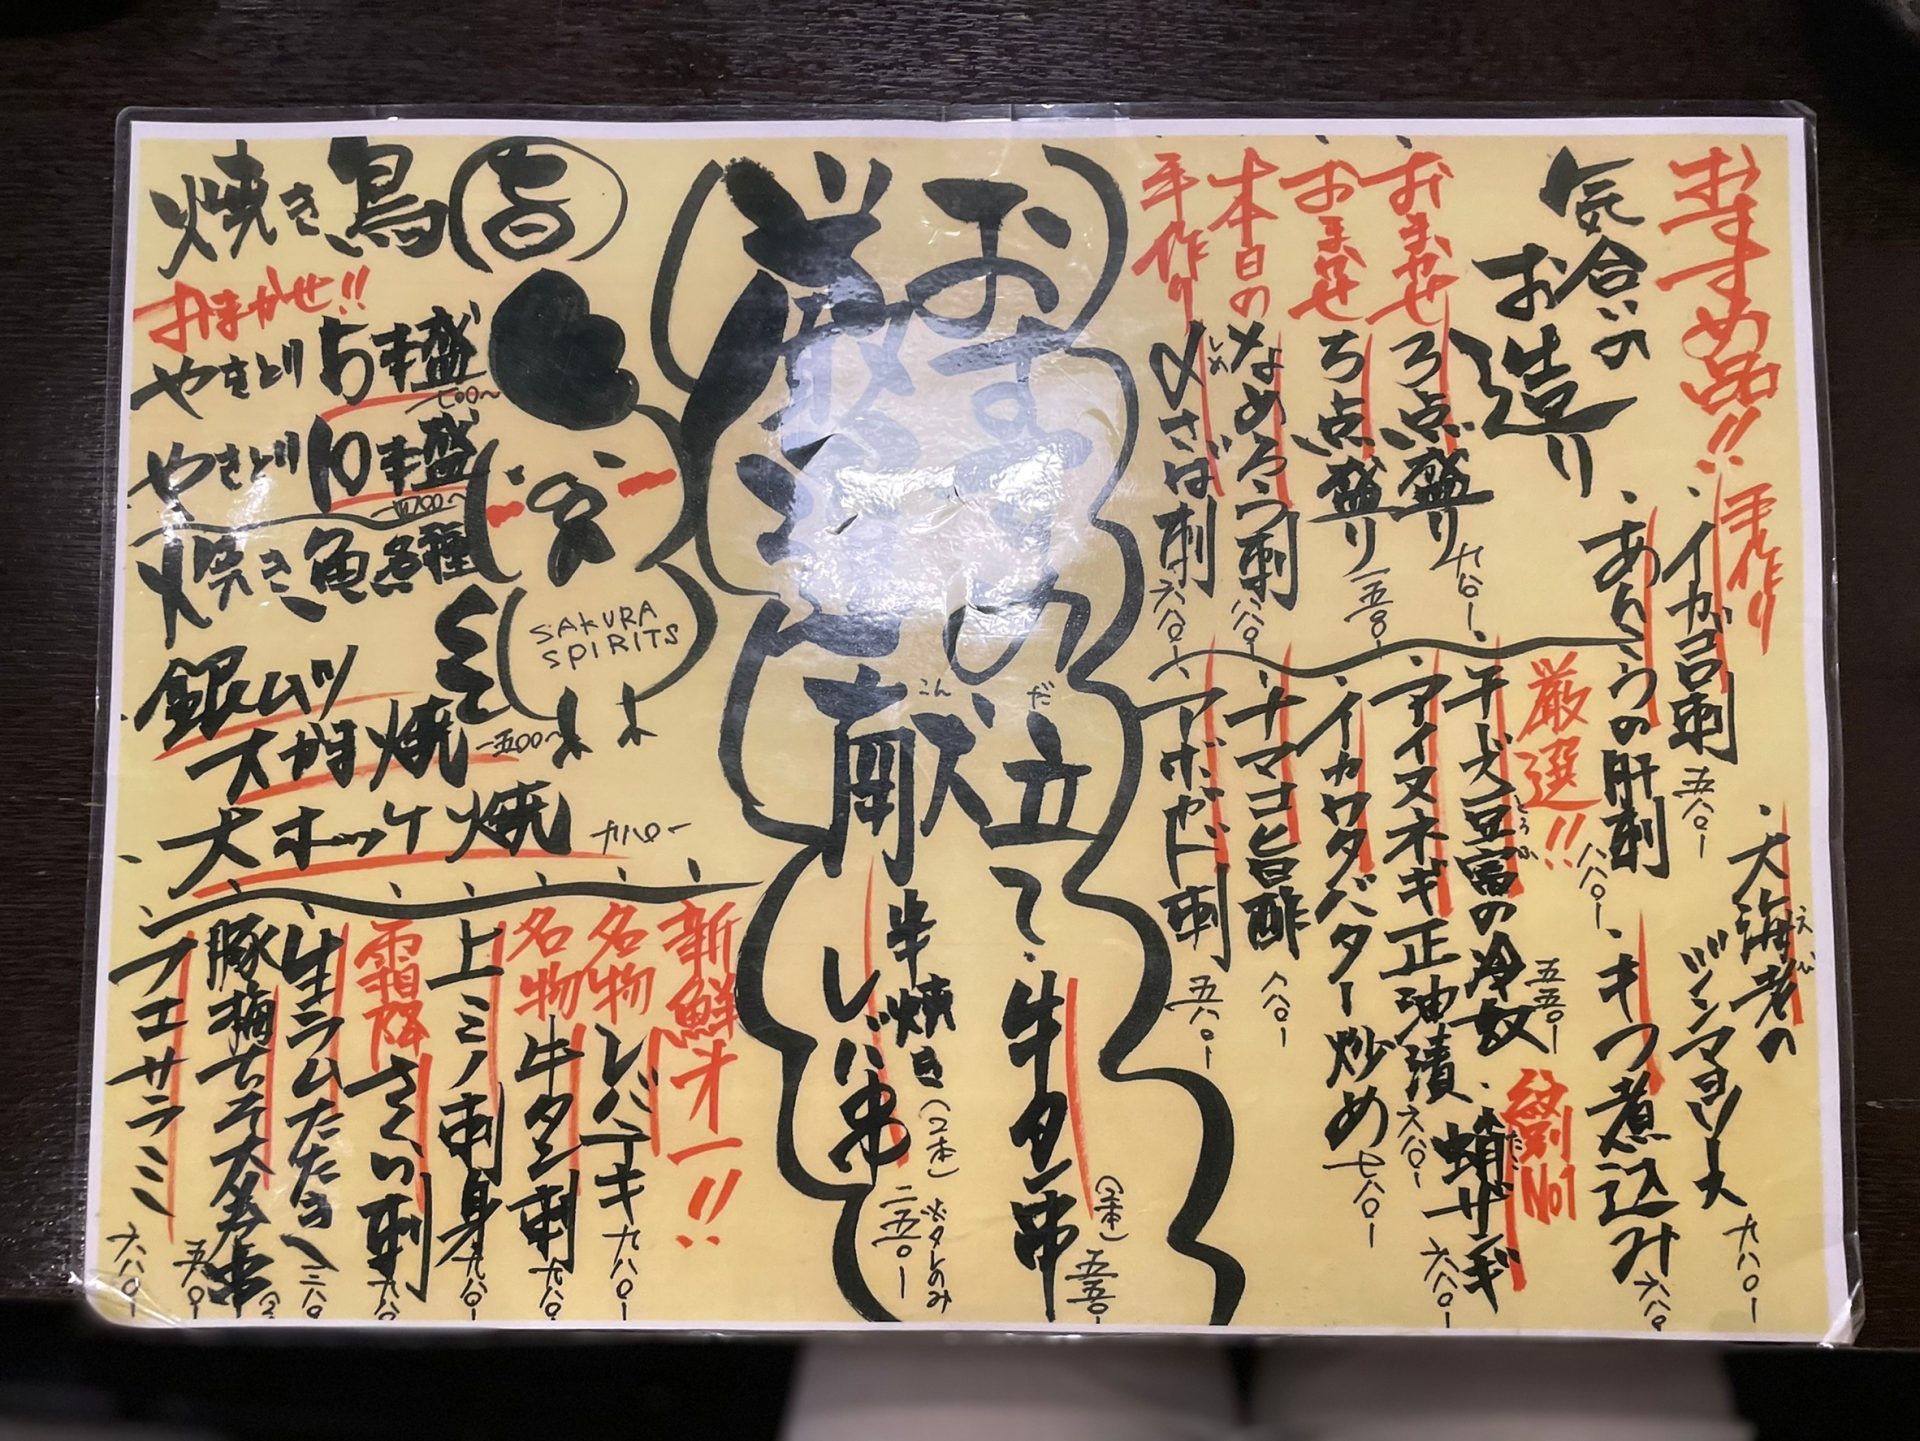 おすすめ品!!
気合いの
お造り
おまかせ
3点盛り
九八〇ー
おまかせ
5点盛り
一五八〇ー
本日の
なめろう刺
八八〇ー
手作り
〆さば刺
しめ
六八〇ー
手作り
イカ刺
五八〇ー
あんこうの肝刺
八八〇ー
大海老の
えび
九八〇ー
キつ煮込み
六八〇
厳選!!
豆富の冷奴
とうふ
五五〇ー
No1
蛸ザンギ
たこ
六八〇ー
アイヌネギ正油漬
六八〇ー
イカワタバター炒め
七八〇ー
ナマコ旨酢
八八〇ー
アボガド刺
五八〇ー
おすすめ
献立て
こんだ
牛タン串
(2本)
五五〇ー
半焼き
しび串
(2本)
※タレのみ
二五〇ー
焼き鳥
おまかせ!!
やきとり5本盛
やきとり10本盛
焼き魚各種
銀ムツ
カマ焼
一五〇〇〜
大ホッケ焼
SAKURA
SPIRITS
新鮮才一!!
名物
レバテキ
九八〇ー
名物
牛タン刺
九八〇ー
上ミノ刺身
九八〇ー
霜降
さくら刺
九八〇
生ラムたたき
豚梅しそ大葉串
五八〇ー
フエサラミ
六八〇ー